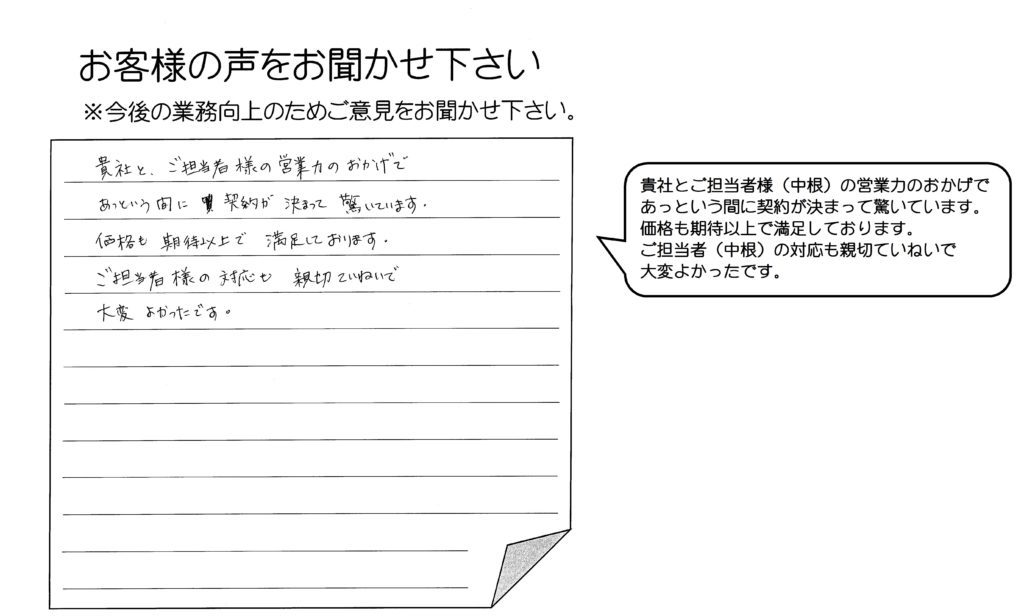 お客様の声をお聞かせ下さい
※今後の業務向上のためご意見をお聞かせ下さい。
貴社と、ご担当者様の営業力のおかげで
あっという間に 契約が 決まって 驚いています。
価格も 期待以上で 満足しております。
ご担当者様の対応も 親切ていねいで
大変 よかったです。
貴社とご担当者様（中根）の営業力のおかげで
あっという間に契約が決まって驚いています。
価格も期待以上で満足しております。
ご担当者（中根）の対応も親切ていねいで
大変よかったです。